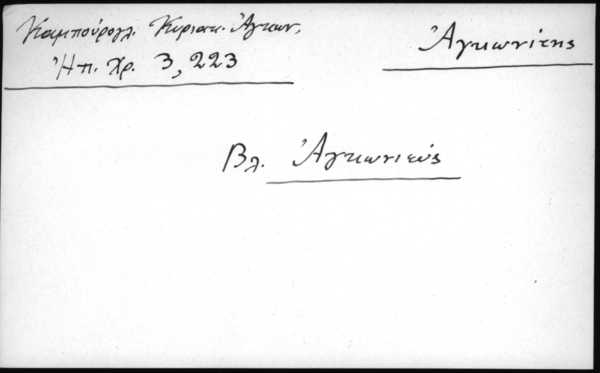 Καμπούρογλ. Κυριακ. Ἀγκων.
Ἠπ. Χρ. 3, 223
Ἀγκωνίτης
Βλ. Ἀγκωνιεύς